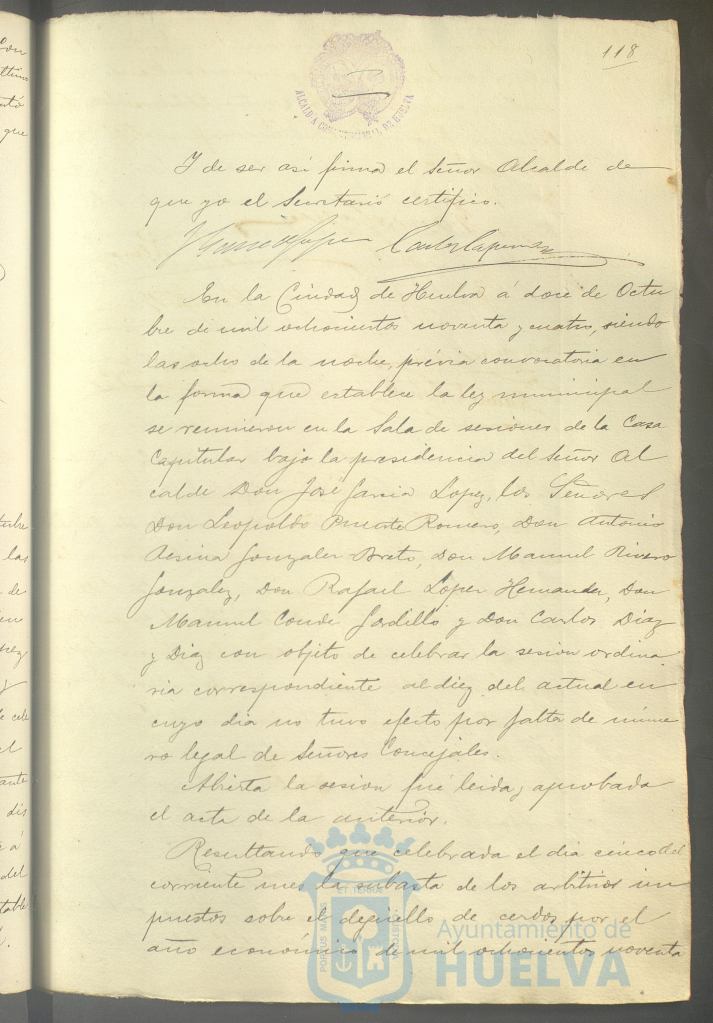 118
ALCALDIA CONSTITUCIONAL DE HUELVA
Y de ser asi firma el Señor Alcalde de
que yo el Secretario certifico.
En la Ciudad de Huelva á doce de Octu
bre de mil ochocientos noventa y cuatro, siendo
las ocho de la noche, prévia convocatoria en
la forma que establece la ley municipal
se reunieron en la Sala de sesiones de la Casa
Capitular bajo la presidencia del Señor Al
calde Don José Garcia Lopez, los Señores
Don Leopoldo Puente Romero, Don Antonio
Gonzalez Breto, Don Manuel Rivero
Gonzalez, Don Rafael Lopez Hernandez, Don
Manuel Conde Gordillo y Don Carlos Diaz
y Diaz con objeto de celebrar la sesion ordina
ria correspondiente al diez del actual en
cuyo dia no tuvo efecto por falta de núme
ro legal de Señores Concejales.
Abierta la sesion fué leida y aprobada
el acta de la anterior.
Resultando que celebrada el dia cinco del
corriente mes la subasta de los arbitrios im
puestos sobre el degüello de cerdos por el
año económico de mil ochocientos noventa
Ayuntamiento de
HUELVA